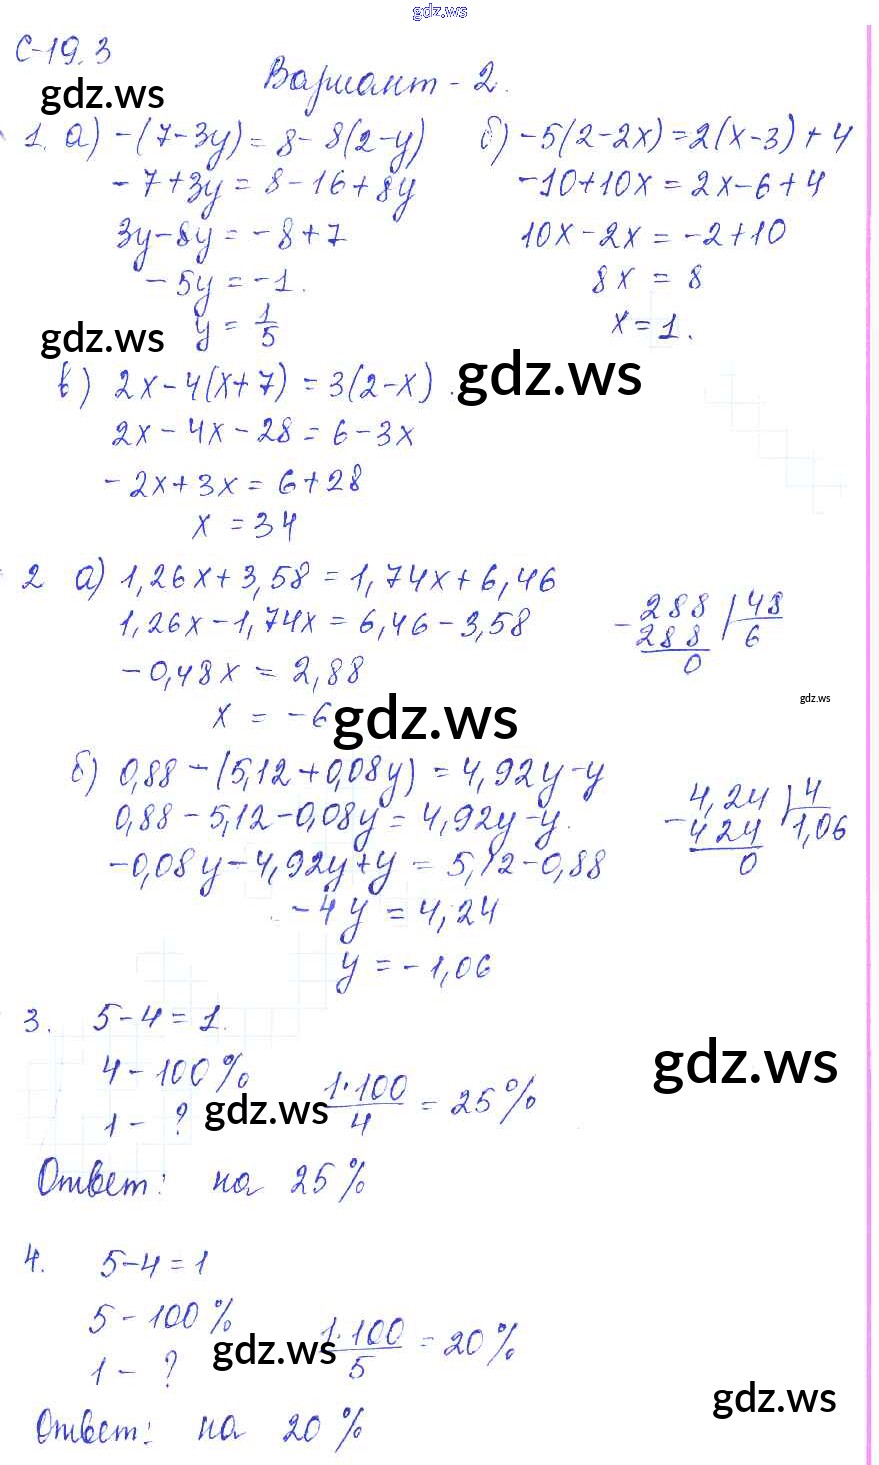 gdz.ws
С-19.3
gdz.ws
Вариант - 2.
1. а) -(7-3y) = 8-8(2-y)
-7+3y = 8-16+8y
3y-8y = -8+7
-5y = -1.
y = 1/5
gdz.ws
б) -5(2-2x)=2(x-3)+4
-10+10x = 2x-6+4
10x-2x = -2+10
8x = 8
x=1.
gdz.ws
в) 2x-4(x+7) = 3(2-x)
2x-4x-28 = 6-3x
-2x+3x = 6+28
x = 34
2 а) 1,26x+3,58 = 1,74x+6,46
1,26x-1,74x = 6,46-3,58
-0,48x = 2,88
x = -6
gdz.ws
-288 | 48
288 6
0
gdz.ws
б) 0,88-(5,12+0,08y) = 4,92y-y
0,88-5,12-0,08y = 4,92y-y.
-0,08y-4,92y+y = 5,12-0,88
-4y = 4,24
y = -1,06
-4,24 | 4
424 1,06
0
3. 5-4=1.
4-100%
1 - ?
gdz.ws
1·100/4 = 25%
gdz.ws
Ответ: на 25%
4. 5-4=1
5-100%
1 - ?
gdz.ws
1·100/5 = 20%
gdz.ws
Ответ: на 20%